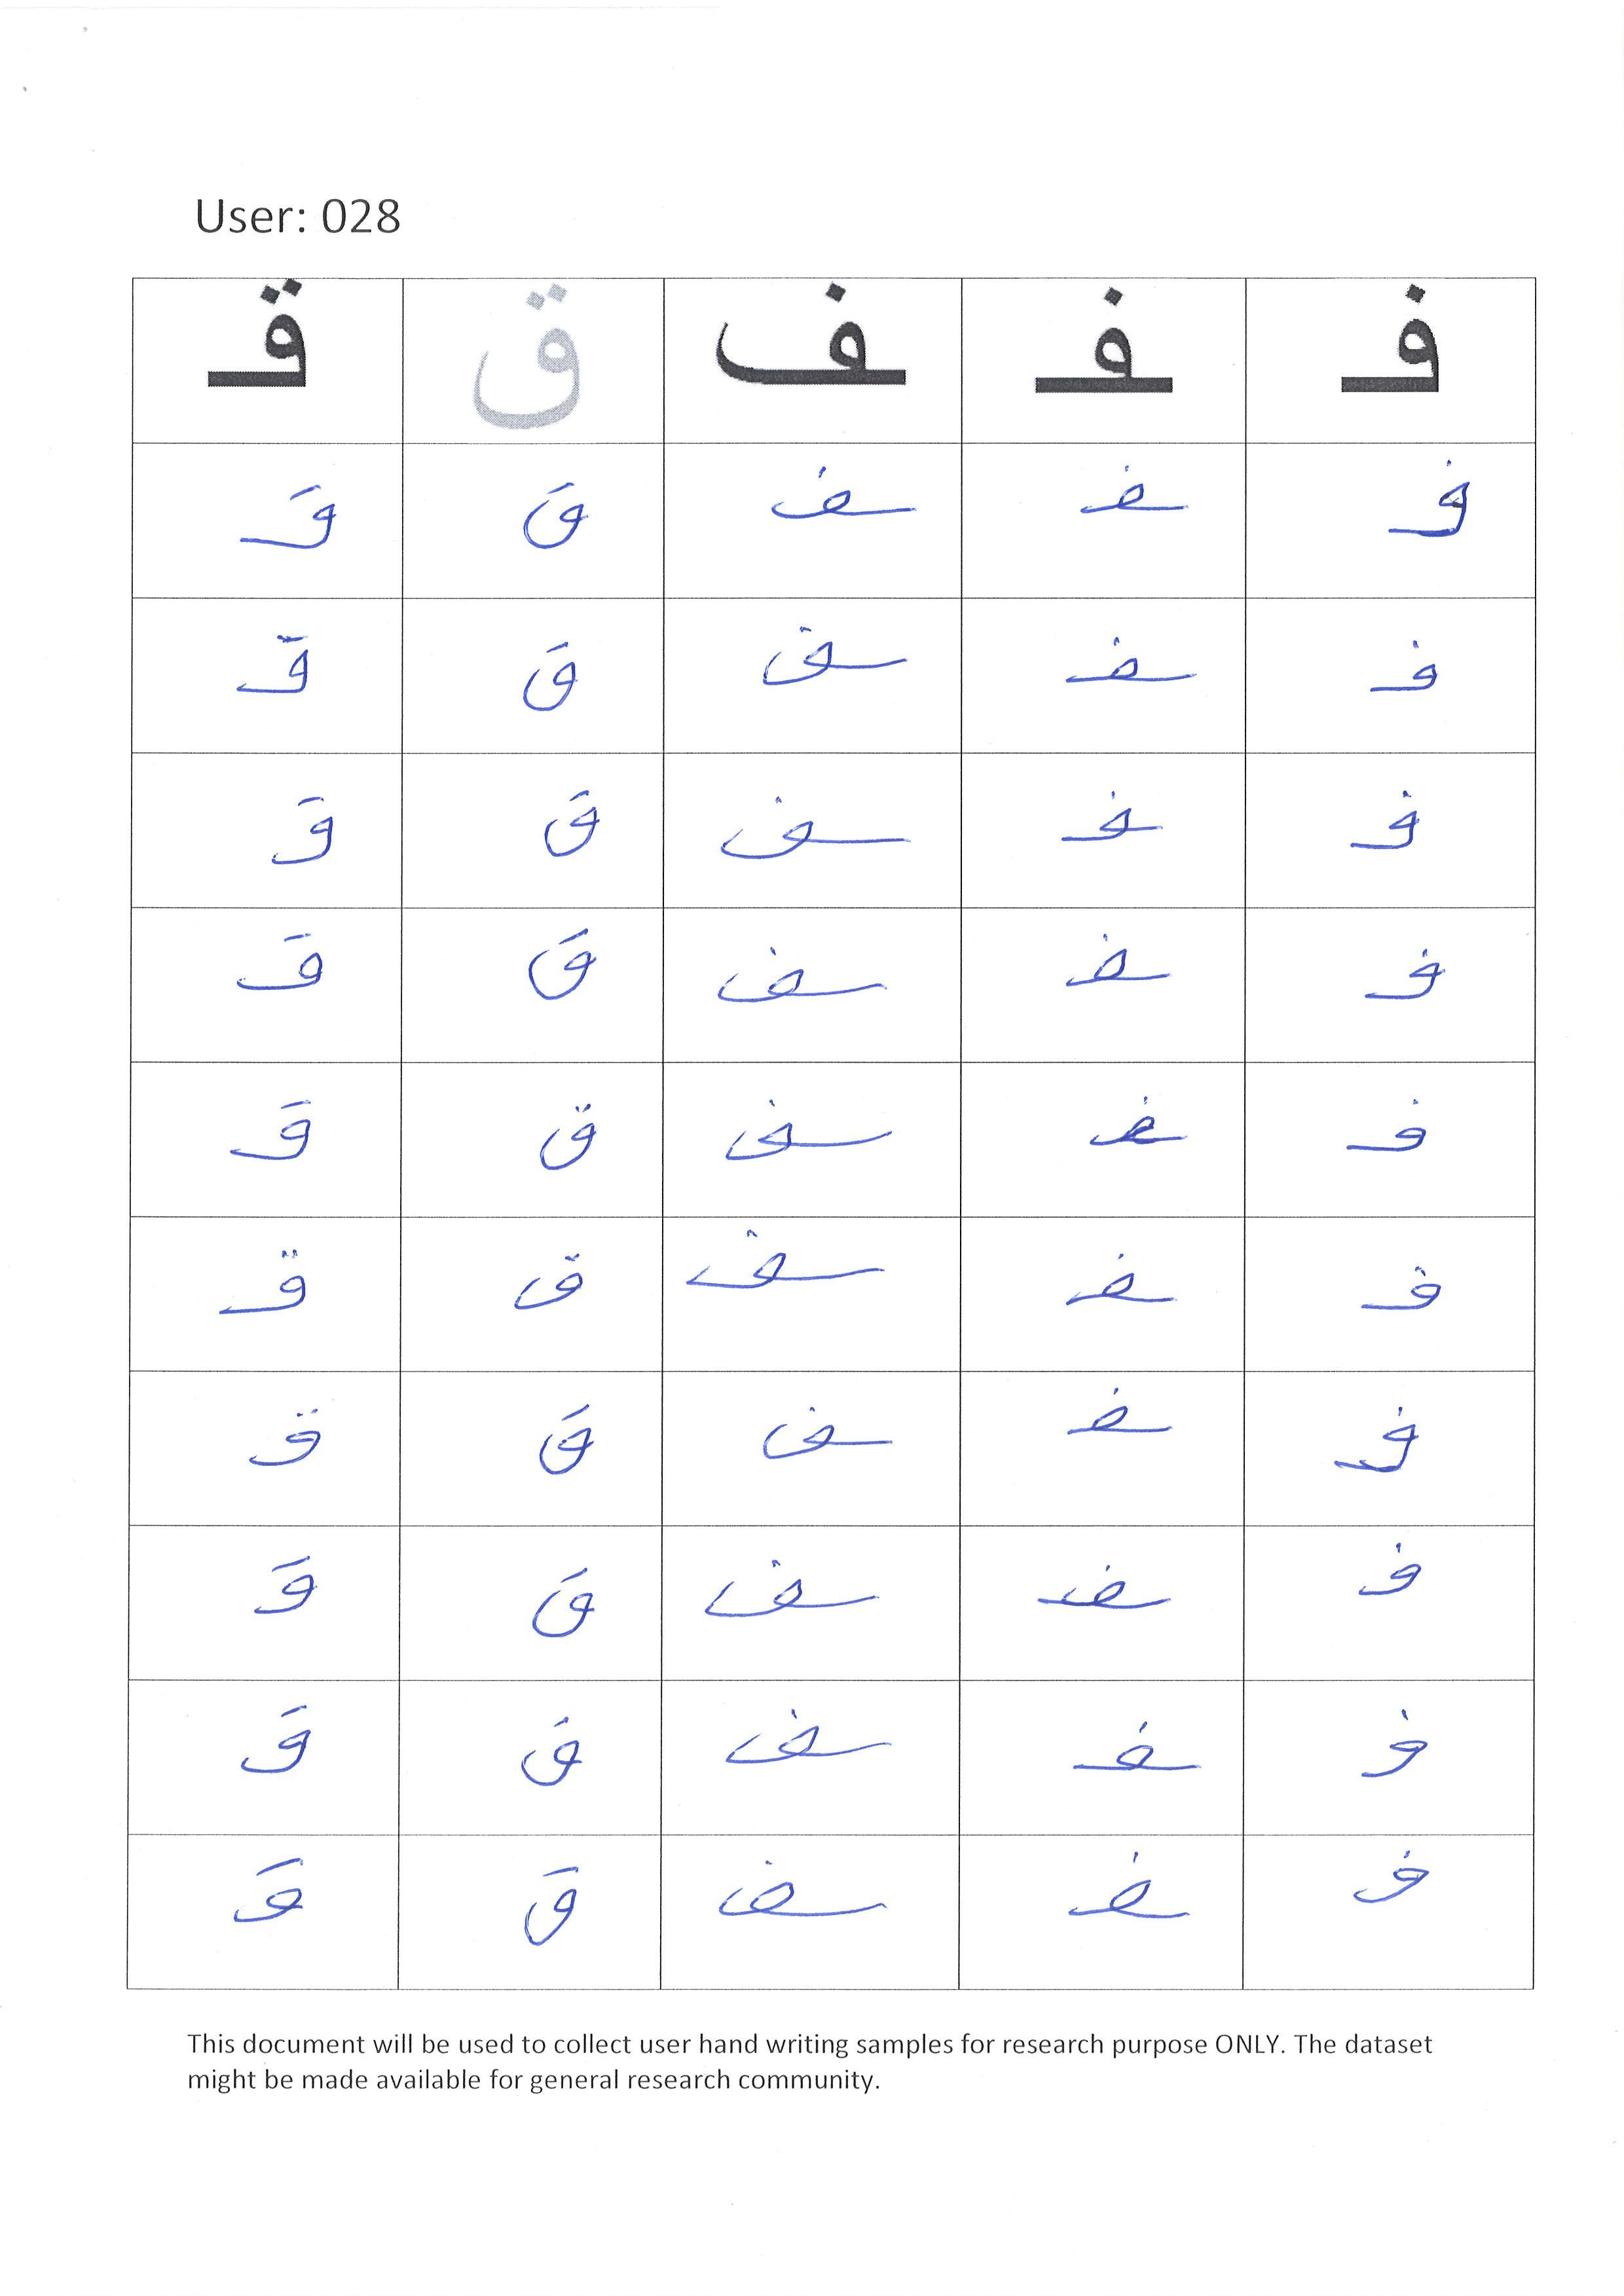 User: 028
قـ ق ـف ـفـ فـ
قـ ق ـف ـفـ فـ
قـ ق ـف ـفـ فـ
قـ ق ـف ـفـ فـ
قـ ق ـف ـفـ فـ
قـ ق ـف ـفـ فـ
قـ ق ـف ـفـ فـ
قـ ق ـف ـفـ فـ
قـ ق ـف ـفـ فـ
قـ ق ـف ـفـ فـ
قـ ق ـف ـفـ فـ
This document will be used to collect user hand writing samples for research purpose ONLY. The dataset
might be made available for general research community.